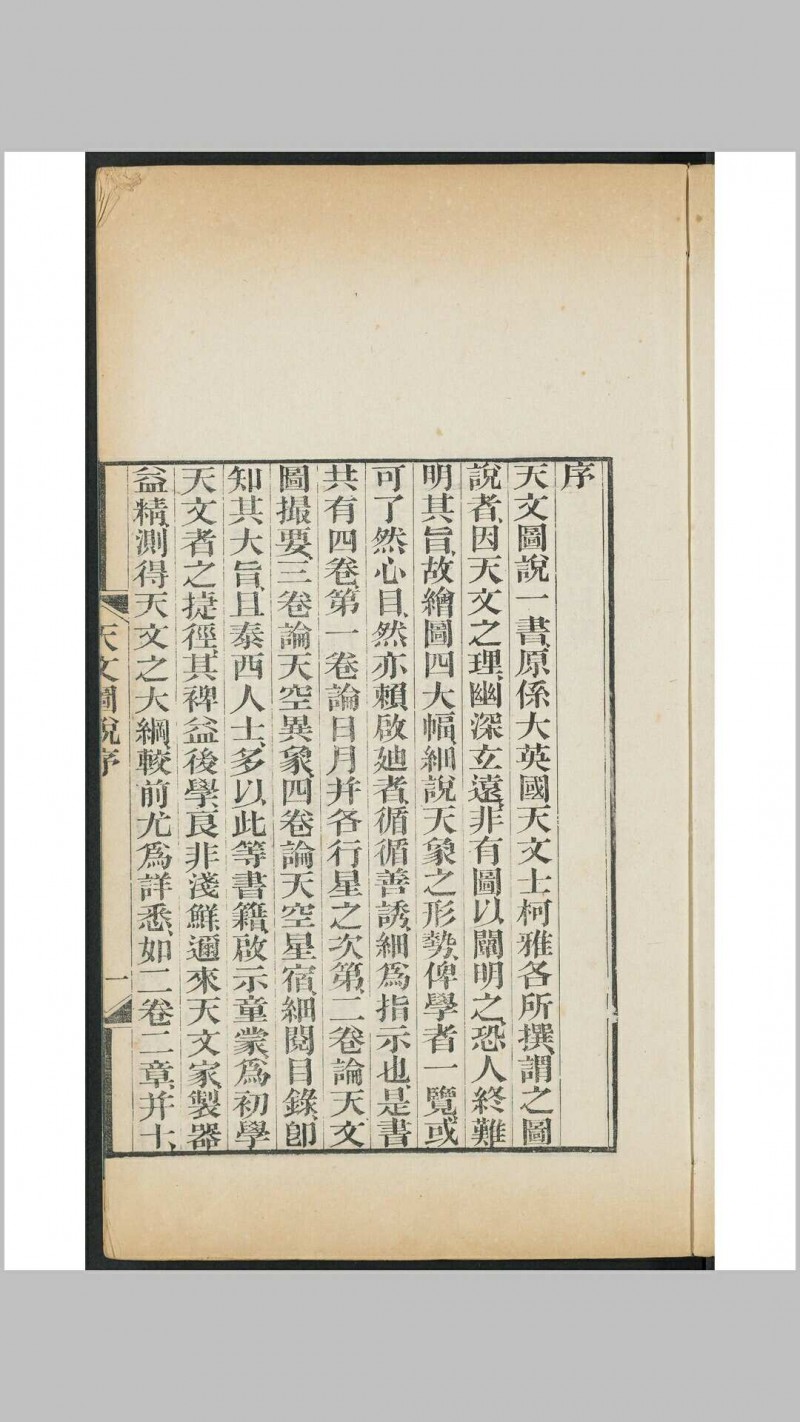 序
天文圖說一書、原係大英國天文士柯雅各所撰、謂之圖
說者、因天文之理、幽深玄遠、非有圖以闡明之、恐人終難
明其旨、故繪圖四大幅、細說天象之形勢、俾學者一覽、或
可了然心目、然亦賴啟廸者、循循善誘、細爲指示也、是書
共有四卷、第一卷論日月并各行星之次第、二卷論天文
圖撮要、三卷論天空異象、四卷論天空星宿、細閱目錄、卽
知其大旨、且泰西人士、多以此等書籍、啟示童蒙、爲初學
天文者之捷徑、其裨益後學、良非淺鮮、邇來天文家、製器
益精、測得天文之大綱、較前尤爲詳悉、如二卷二章、并十、
天文圖說序
一